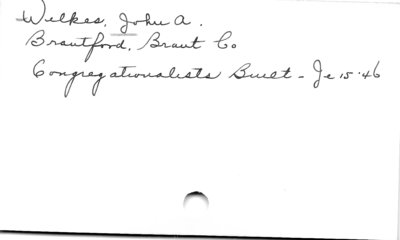 Wilkes, John A.
Brantford, Brant Co
Congregationalists Built - Je 15 '46